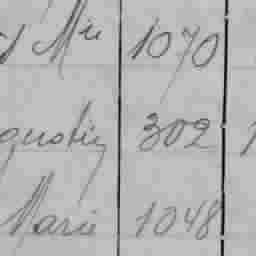 Mie 1070
gustin 302
Marie 1048